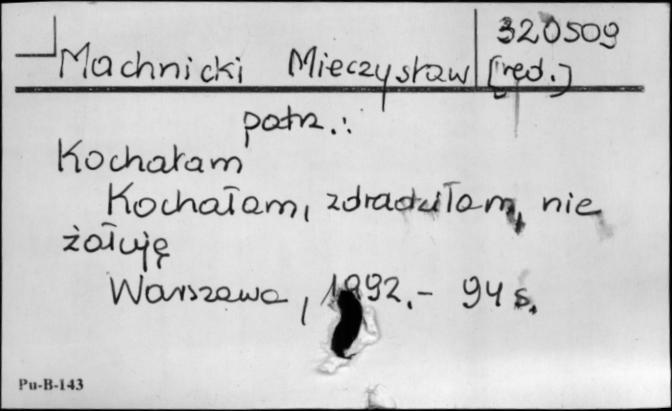 320509
Machnicki Mieczysław [red.]
patrz.:
Kochałam
Kochałam, zdradziłam, nie
żałuję
Warszawa, 1992.- 94 s.
Pu-B-143